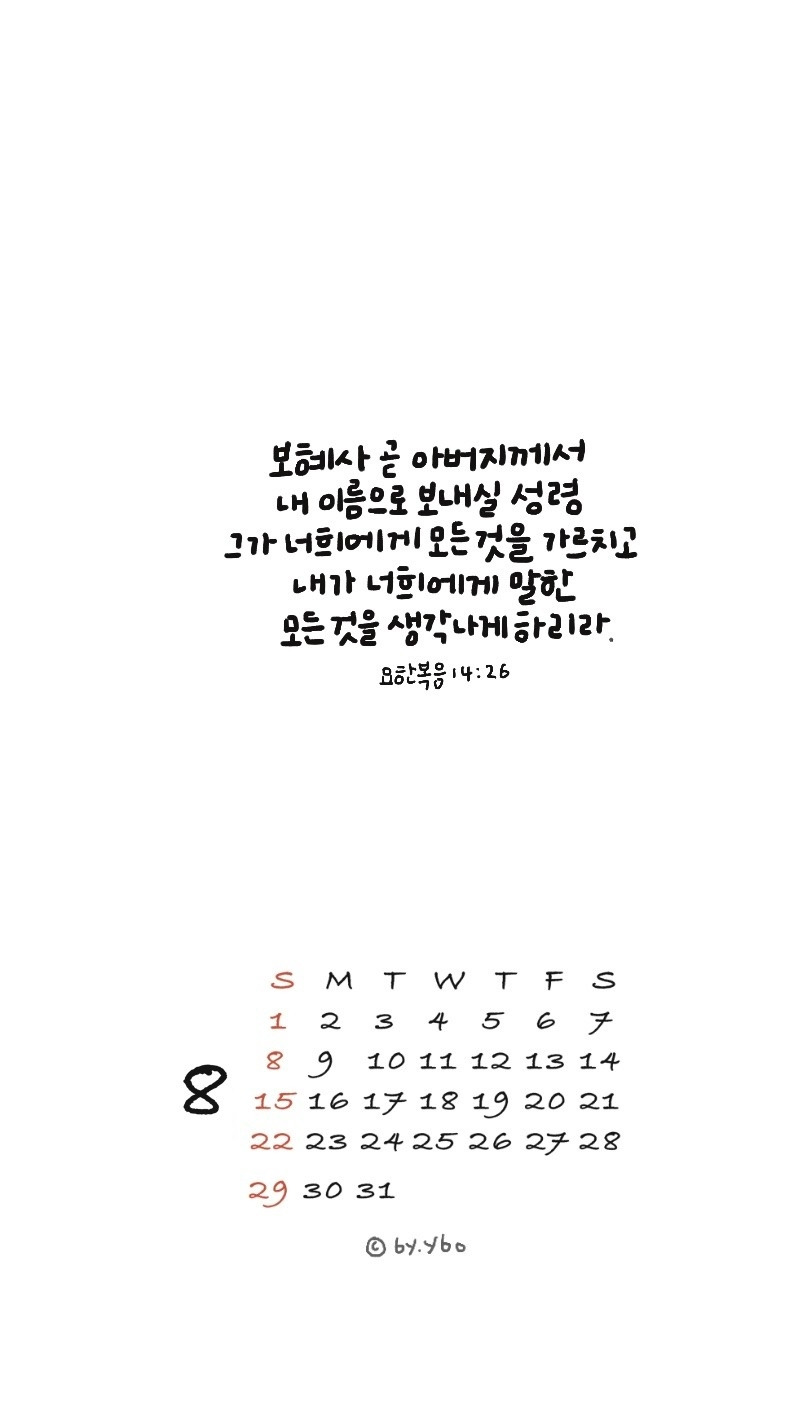 보혜사 곧 아버지께서
내 이름으로 보내실 성령
그가 너희에게 모든 것을 가르치고
내가 너희에게 말한
모든 것을 생각나게 하리라.
요한복음 14:26
S M T W T F S
1 2 3 4 5 6 7
8 9 10 11 12 13 14
8
15 16 17 18 19 20 21
22 23 24 25 26 27 28
29 30 31
© by.ybo